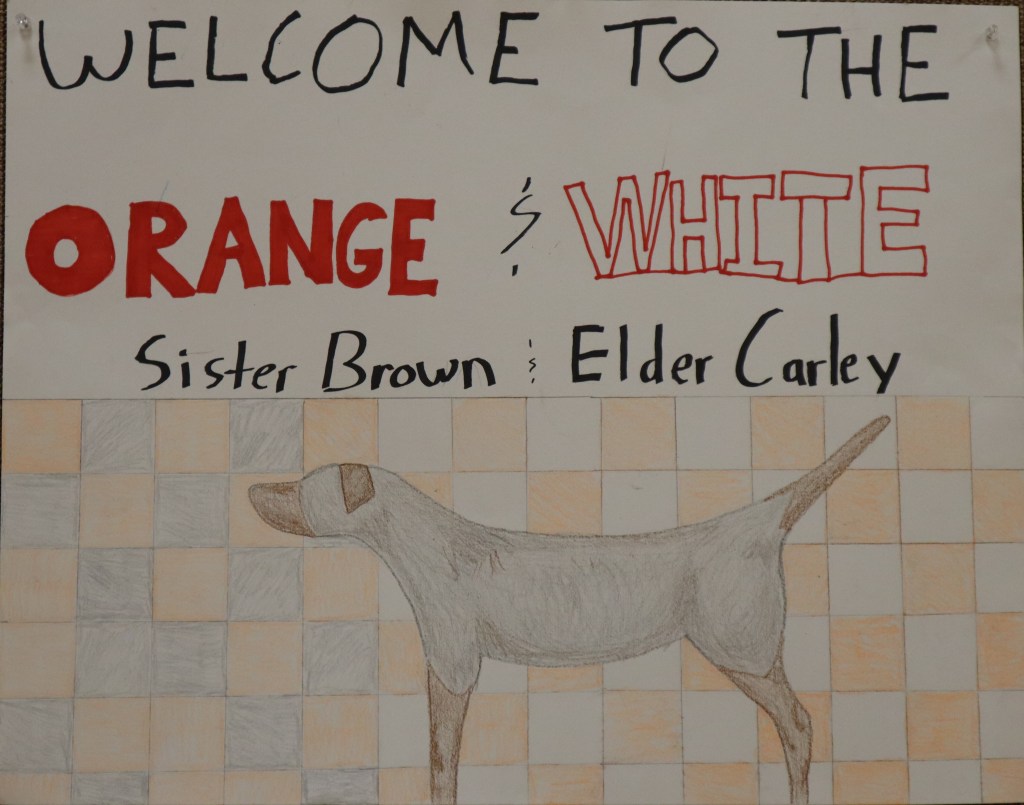 WELCOME TO THE
ORANGE & WHITE
Sister Brown & Elder Carley